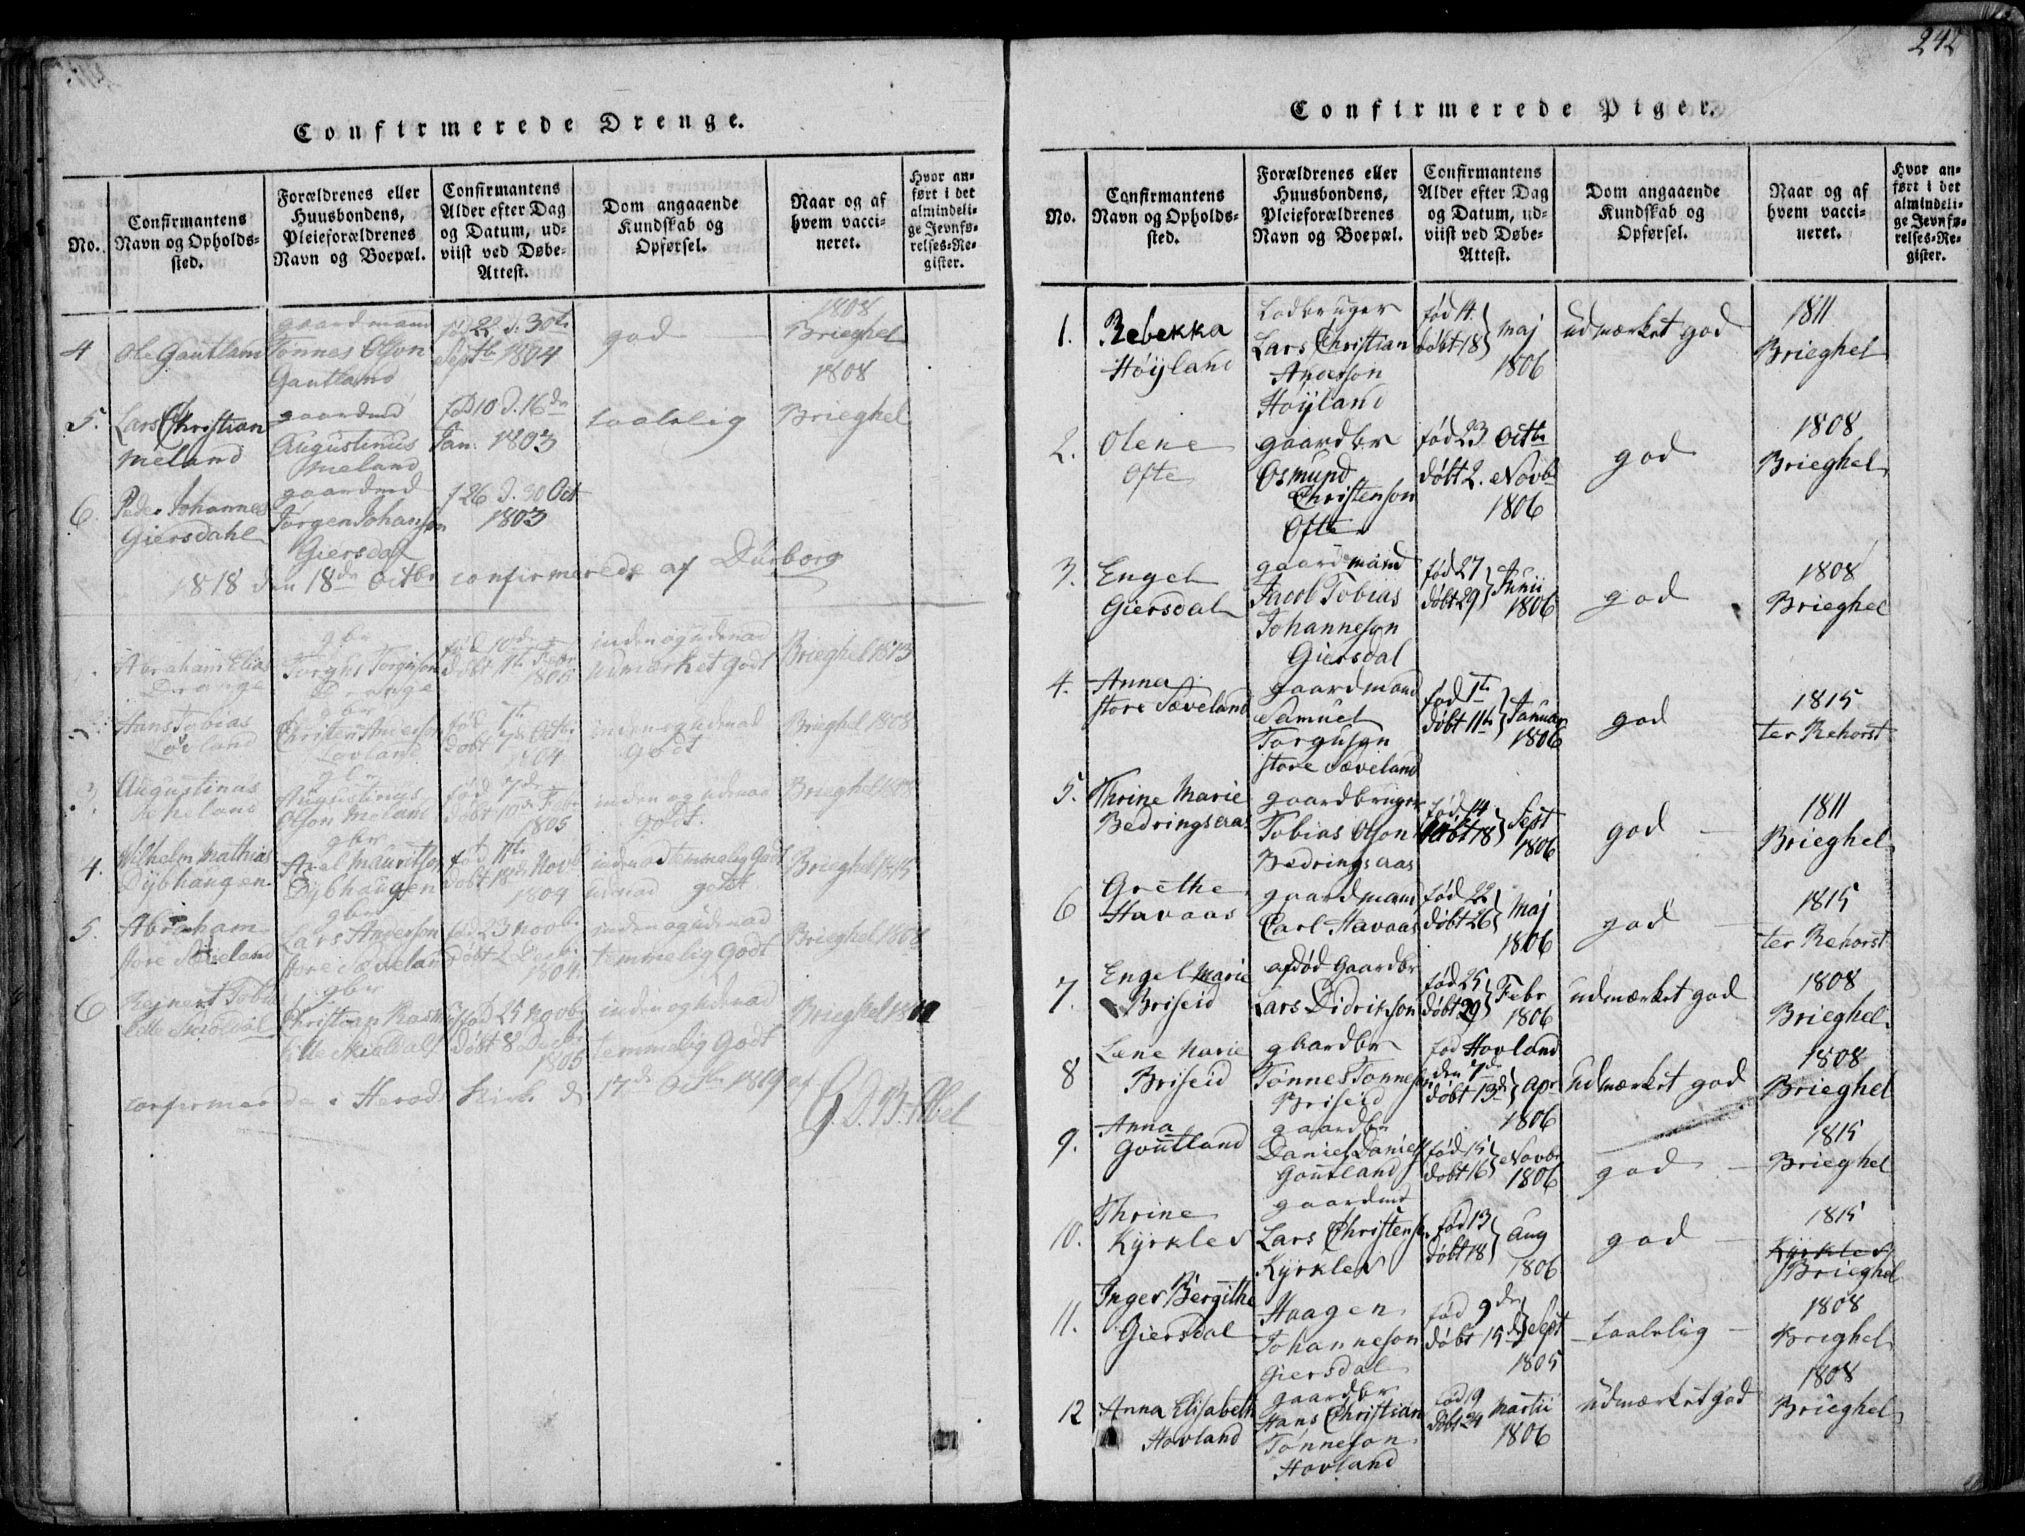 242
Confirmerede Drenge.
No.
Confirmantens Navn og Opholdssted.
Forældrenes eller Huusbondens, Pleieforældrenes Navn og Boepæl.
Confirmantens Alder efter Dag og Datum, udviist ved Døbe-Attest.
Dom angaaende Kundskab og Opførsel.
Naar og af hvem vaccineret.
Hvor anført i det almindelige Jevnførelses-Register.
4 Ole Gautland
gaardmand
Tønnes Olson
Gautland
fød 22 d. 30te
Septb 1804
god
1808
Brieghel
5. Lars Christian
Meland
gaardmd
Augustinus
Meland
fød 10 d. 16de
Jan. 1803
taalelig
1808
Brieghel
6. Peder Johannes
Giersdahl
gaardmd
Jørgen Johanson
Giersdal
f 26 d. 30 Oct
1803
1818 den 18de Octbr confirmerede af Dürborg
Abraham Elias
Drange
gbr
Torgusson
Drange
fød 10de
døbt Febr
1805
inden og udenad
udmærket godt
Brieghel 1813
Hans Tobias
Løvland
gbr
Christen Anderson
Lovland
fød 1te
døbt 7de Octbr
1804
inden og udenad
godt
Brieghel 1808
3. Augustinus
Meland
gbr
Augustinus
Olson Meland
fød 7de
døbt 10de Febr
1805
inden og udenad
godt.
Brieghel
4. Wilhelm Mathias
Dybhaugen
gbr
Axel Mauritson
Dybhaugen
fød 11te
døbt 18de Novb
1804
indenad temmelig godt
udenad godt.
Brieghel 1815
5. Abraham
store Sæveland
gbr
Lars Anderson
store Sæveland
fød 23 Novbr
døbt 2 Decbr
1804
inden og udenad
temmelig Godt
Brieghel 1808
6 Reinert Tobias
lille Skioldal
gbr
Christian
lille Skieldal
fød 25 Novbr
døbt 8 Decbr
1805
inden og udenad
temmelig Godt
Brieghel
confirmerede i Herads Kirke d 17de Octbr 1819 af
G. D. B. Abel
Confirmerede Piger.
No.
Confirmantens Navn og Opholdssted.
Forældrenes eller Huusbondens, Pleieforældrenes Navn og Boepæl.
Confirmantens Alder efter Dag og Datum, udviist ved Døbe-Attest.
Dom angaaende Kundskab og Opførsel.
Naar og af hvem vaccineret.
Hvor anført i det almindelige Jevnførelses-Register.
1. Rebekka
Høyland
Lodbruger
Lars Christian
Anderson
Høyland
fød 14.
døbt 18 Maj
1806
udmærket god
1811
Brieghel
2. Olene
Ofte
gaardbr
Osmund
Christenson
Ofte
fød 23 Octbr
døbt 2. Novbr
1806
god
1808
Brieghel
3. Engel
Giersdal
gaardmand
Jacob Tobias
Johanneson
Giersdal
fød 27
døbt 29 Junii
1806
god
1808
Brieghel
4. Anna
store Sæveland
gaardmand
Samuel
Torguson
store Sæveland
fød 1te
døbt 11te Januar
1806
god
1815
ter Rehorst
5. Thrine Marie
Bedringsaas
gaardbruger
Tobias Olson
Bedringsaas
fød 14
døbt 18 Sept
1806
god
1811
Brieghel
6 Grethe
Havaas
gaardmand
Carl Havaas
fød 22
døbt 26 Maj
1806
god
1815
ter Rehorst
7. Engel Marie
Briseid
afdød Gaardbr
Lars Didrikson
fød 25
døbt 29 Febr
1806
udmærket god
1808
Brieghel
8 Lene Marie
Briseid
gaardbr
Tønnes Tønneson
Briseid
fød Hovland
den 7de
døbt 13de Apr
1806
udmærket god
1808
Brieghel
9. Anna
Goutland
gaardbr
Daniel Daniels
Goutland
fød 15
døbt 16 Novbr
1806
god
1815
Brieghel
10. Thrine
Kyrklev
gaardmd
Lars Christensen
Kyrklev
fød 13
døbt 18 Aug
1806
god
1815
Kyrklev
Brieghel
11. Inger Bergithe
Giersdal
Haagen
Johanneson
Giersdal
fød 9de
døbt 15de Sept
1805
taalelig
1808
Brieghel
12 Anna Elisabeth
Hovland
gaardbr
Hans Christian
Tønneson
Hovland
fød 19
døbt 24 Martii
1806
udmærket god
1808
Brieghel